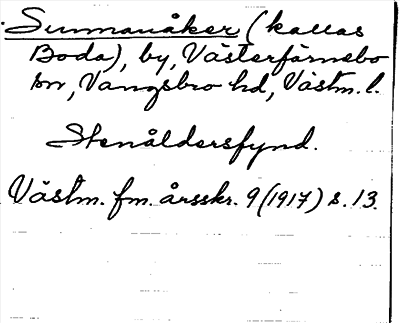 Sunnanåker (kallas
Boda), by, Västerfärnebo
sn, Vangsbro hd, Västm. l.
Stenåldersfynd.
Västm. fm. årsskr. 9 (1917) s. 13.